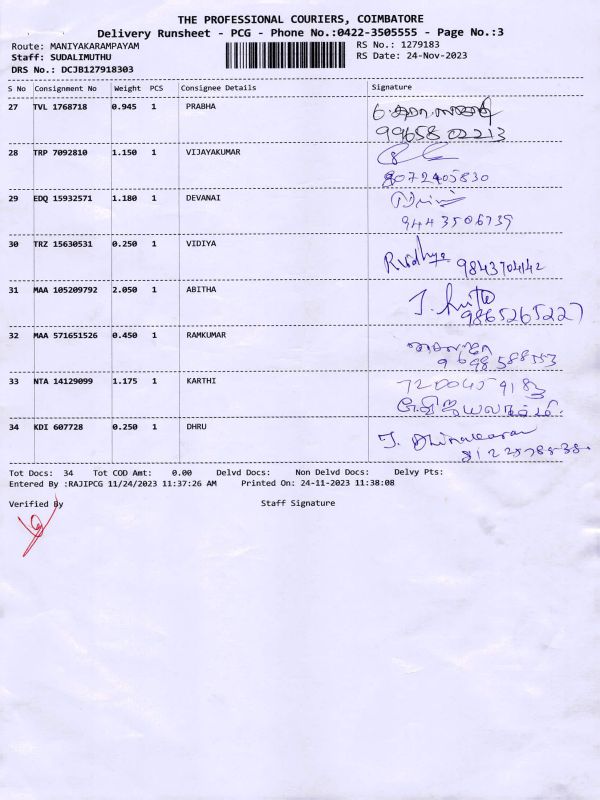 THE PROFESSIONAL COURIERS, COIMBATORE
Delivery Runsheet - PCG - Phone No.:0422-3505555 - Page No.:3
Route: MANIYAKARAMPAYAM RS No.: 1279183
Staff: SUDALIMUTHU RS Date: 24-Nov-2023
DRS No.: DCJB127918303
S No Consignment No Weight PCS Consignee Details Signature
27 TVL 1768718 0.945 1 PRABHA
99658 02213
28 TRP 7092810 1.150 1 VIJAYAKUMAR
8072405830
29 EDQ 15932571 1.180 1 DEVANAI
9443506739
30 TRZ 15630531 0.250 1 VIDIYA
R Vidhya 9843704142
31 MAA 105209792 2.050 1 ABITHA
9865265227
32 MAA 571651526 0.450 1 RAMKUMAR
33 NTA 14129099 1.175 1 KARTHI
34 KDI 607728 0.250 1 DHRU
Tot Docs: 34 Tot COD Amt: 0.00 Delvd Docs: Non Delvd Docs: Delvy Pts:
Entered By :RAJIPCG 11/24/2023 11:37:26 AM Printed On: 24-11-2023 11:38:08
Verified By Staff Signature